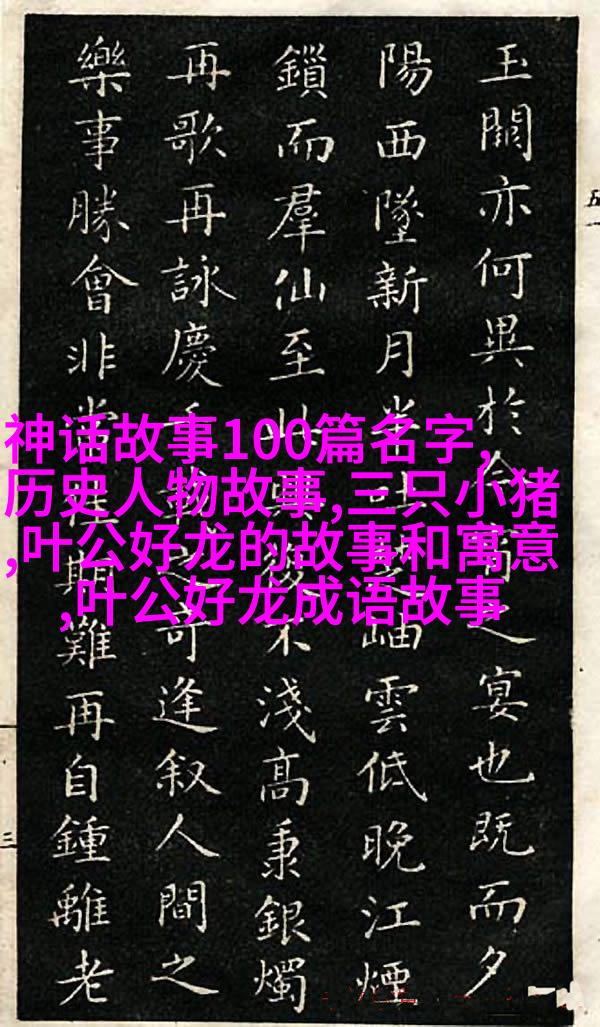 玉闕亦何異於之宴也既而夕
陽西墜新月岫雲低晚江煙
鎖而羣仙至此不淺高秉銀燭
再歌再詠慶奇逢叙人間之
樂事勝會非常佳期難再自鍾離老
神话故事100篇名字,
历史人物故事,三只小猪
,叶公好龙的故事和寓意
,叶公好龙成语故事
五一
三